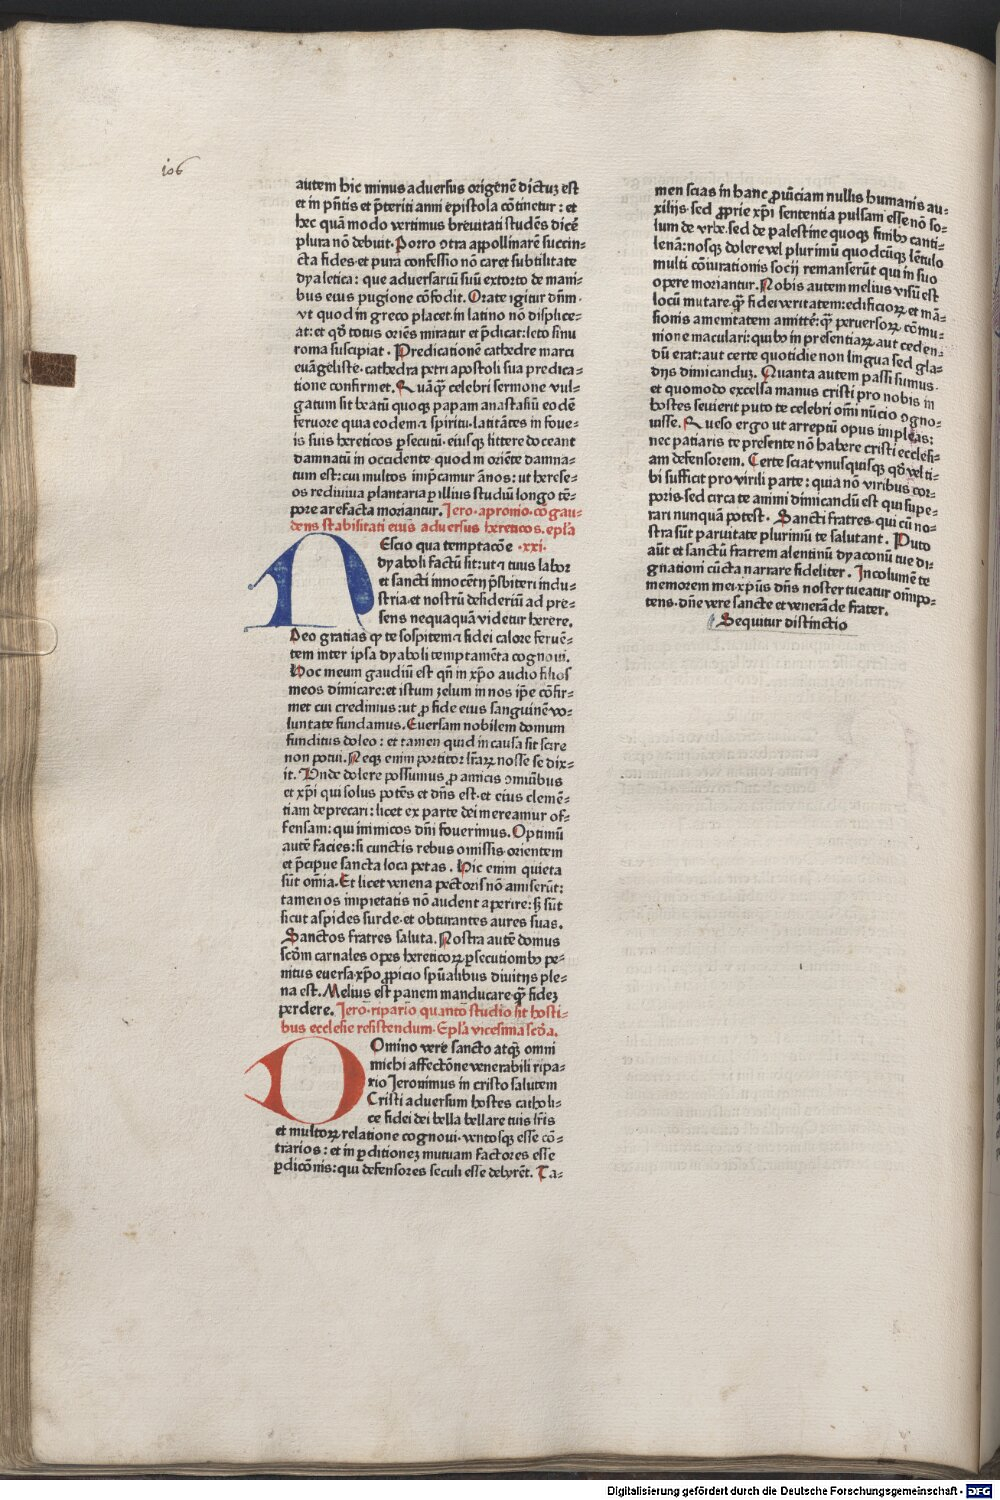 io6
autem hic minus adversus origenē dictuʒ est
et in pn̄tis et p̄teriti anni epistola cōtinetur : et
hec quā modo vertimus brevitati studēs dicē
plura nō debuit. Porro ɔtra appollinarē succin⸗
cta fides et pura confessio nō caret subtilitate
dyaletica : que adversariū suū extorto de mani⸗
bus eius pugione cōfodit. Orate igitur dn̄m.
vt quod in greco placet in latino nō displice⸗
at: et qd̄ totus oriēs miratur et p̄dicat: leto sinu
roma suscipiat. Predicationē cathedre marci
evāgeliste. cathedra petri apostoli sua predica⸗
tione confirmet. Quāqȝ celebri sermone vul⸗
gatum sit beatū quoqȝ papam anastasiū eodē
fervore quia eodem ⁊ spiritu. latitātes in fove⸗
is suis hereticos ꝑsecutū. eiusqȝ littere doceant
damnatū in occidente quod in oriēte damna⸗
tum est: cui multos imp̄camur ānos: ut herese⸗
os rediviva plantaria ꝑ illius studiū longo tē⸗
pore arefacta moriantur. Jero. apronio. cōgau⸗
dens stabilitati eius adversus hereticos. epl̄a
NEscio qua temptacōe .xxi.
dyaboli factū sit: ut ⁊ tuus labor
et sancti innocētij p̄sbiteri indu⸗
stria. et nostrū desideriū ad pre⸗
sens nequaquā videtur herere.
Deo gratias qȝ te sospitem ⁊ fidei calore fervē⸗
tem inter ipsa dyaboli temptamēta cognovi.
Hoc meum gaudiū est qn̄ in xp̄o audio filios
meos dimicare: et istum zelum in nos ip̄e cōfir⸗
met cui credimus: ut ꝓ fide eius sanguinē vo⸗
luntate fundamus. Eversam nobilem domum
funditus doleo : et tamen quid in causa sit scire
non potui. Neqȝ enim portitor lr̄aꝝ nosse se dix⸗
it. Unde dolere possumus ꝓ amicis ɔmunibus
et xp̄i qui solus potēs et dn̄s est. et eius clemē⸗
tiam deprecari: licet ex parte dei mereamur of⸗
fensam: qui inimicos dn̄i foverimus. Optimū
autē facies: si cunctis rebus omissis orientem
et p̄cipue sancta loca petas. Hic enim quieta
sūt om̄ia. Et licet venena pectoris nō amiserūt:
tamen os impietatis nō audent aperire: sȝ sūt
sicut aspides surde. et obturantes aures suas.
Sanctos fratres saluta. Nostra autē domus
scd̄m carnales opes hereticoꝝ ꝑsecutiombȝ pe⸗
nitus eversa. xp̄o ꝓpicio spūalibus divitijs ple⸗
na est. Melius est panem manducare qȝ fideʒ
perdere. Jerō. ripario quanto studio sit hosti⸗
bus ecclesie resistendum. Epl̄a vicesima scd̄a.
DOmino vere sancto atqȝ omni
michi affectōne venerabili ripa⸗
rio Jeronimus in cristo salutem
Cristi adversum hostes catholi⸗
ce fidei dei bella bellare tuis lr̄is
et multoꝝ relatione cognovi. ventosqȝ esse cō⸗
trarios : et in ꝑditioneʒ mutuam factores esse
ꝑdicōnis: qui defensores seculi esse debuerēt. Ta⸗
men scias in hanc ꝓvīciam nullis humanis au⸗
xilijs. sed ꝓprie xp̄i sententia pulsam esse nō so⸗
lum de vrbe. sed de palestine quoqȝ finibȝ canti⸗
lenā: nosqȝ dolere vel plurimū quodcūqȝ lētulo
multi cōiurationis socij remanserūt qui in suo
opere moriantur. Nobis autem melius visū est
locū mutare qȝ fidei veritatem: edificioꝝ et mā⸗
sionis amenitatem amittē: qȝ perversoꝝ cōmu⸗
nione maculari: quibȝ in presentiaꝝ aut ceden⸗
dū erat: aut certe quotidie non lingua sed gla⸗
dijs dimicanduʒ. Quanta autem passi sumus.
et quomodo excelsa manus cristi pro nobis in
hostes sevierit puto te celebri om̄i nūcio ɔgno⸗
visse. Queso ergo ut arreptū opus impleas:
nec patiaris te presente nō habere cristi ecclesi⸗
am defensorem. Certe sciat vnusquisqȝ qd̄ vel ti⸗
bi sufficit pro virili parte : quia nō viribus cor⸗
poris. sed circa te animi dimicandū est qui supe⸗
rari nunquā potest. Sancti fratres. qui cū no⸗
stra sūt parvitate plurimū te salutant. Puto
aūt et sanctū fratrem alentinū dyaconū tue di⸗
gnationi cūcta narrare fideliter. Incolumē te
memorem mei. xp̄us dn̄s noster tueatur om̄ipo⸗
tens. dn̄e vere sancte et venerāde frater.
Sequitur distinctio
Digitalisierung gefördert durch die Deutsche Forschungsgemeinschaft - DFG